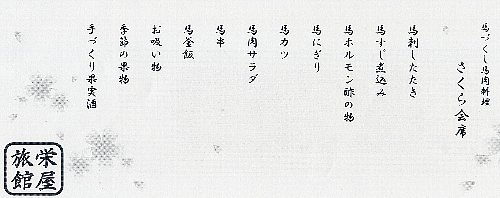 馬づくし馬肉料理
さくら会席
馬刺したたき
馬すじ煮込み
馬ホルモン酢の物
馬にぎり
馬カツ
馬肉サラダ
馬串
馬釜飯
お吸い物
季節の果物
手づくり果実酒
栄屋
旅館